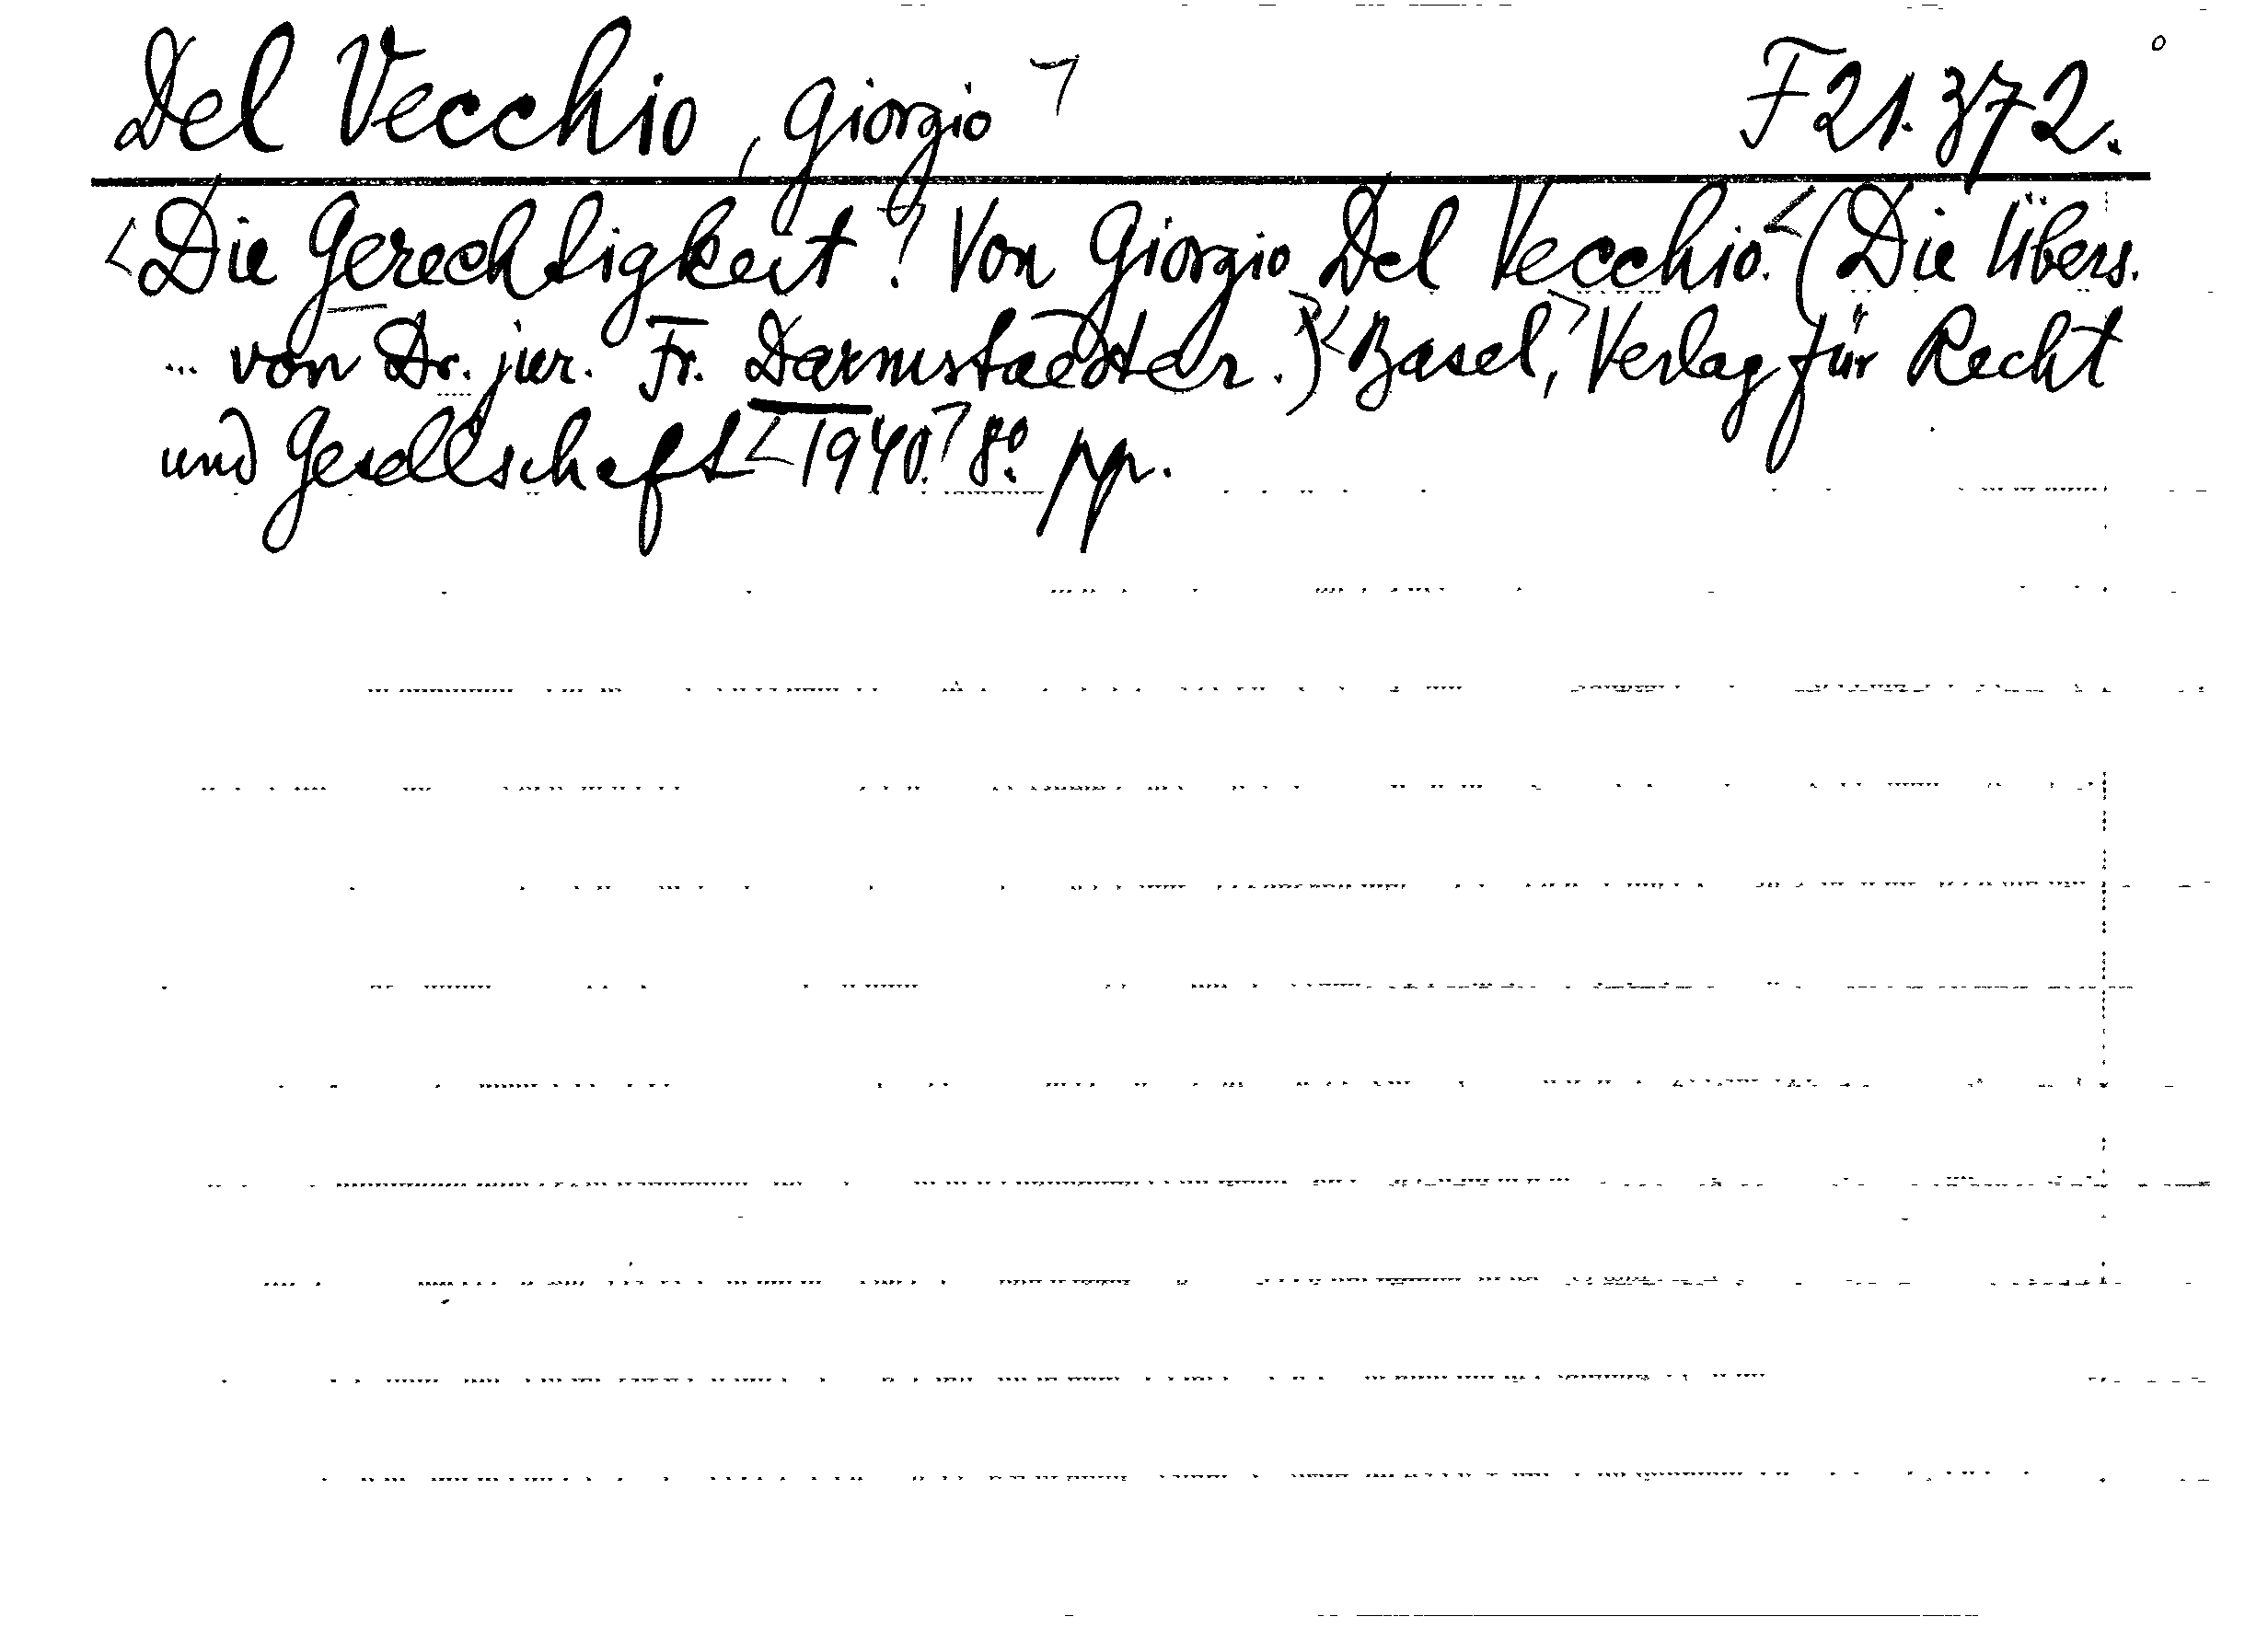 Del Vecchio, Giorgio F 21.372.
Die Gerechtigkeit. Von Giorgio Del Vecchio. (Die Übers.
... von Dr. jur. Fr. Darmstaedter.) Basel, Verlag für Recht
und Gesellschaft 1940. 8º. pp.